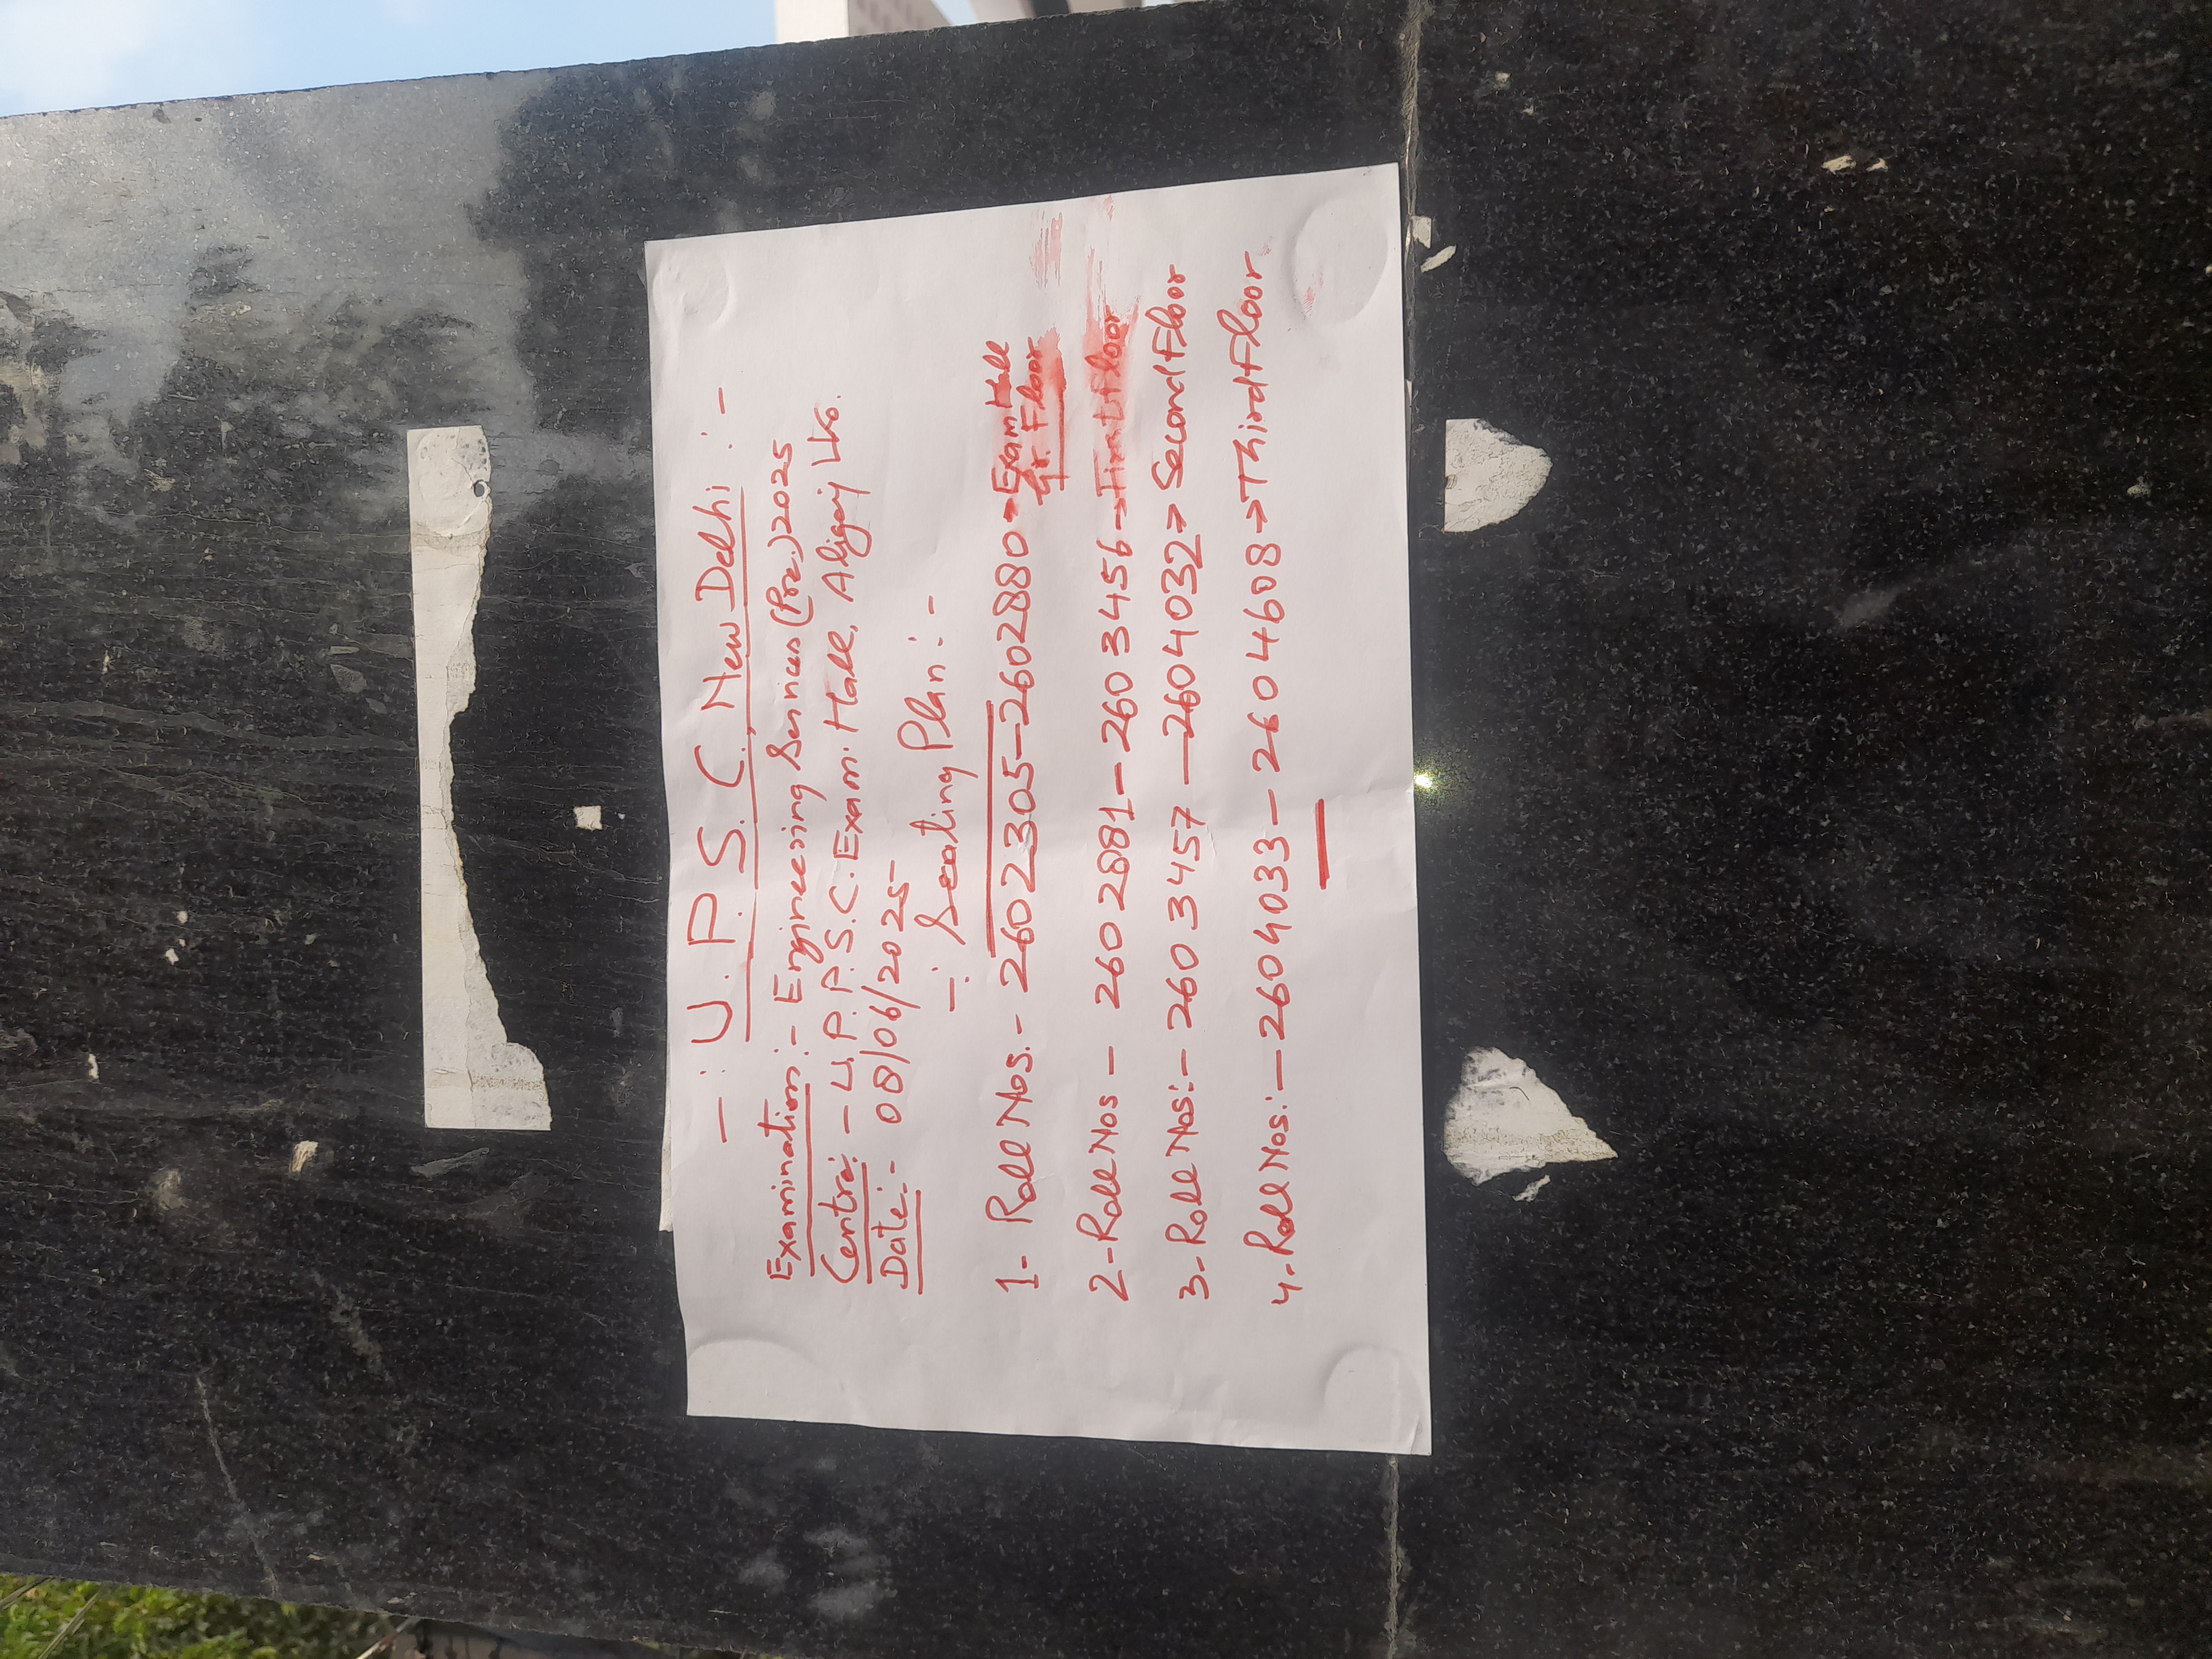 -: U.P.S.C., New Delhi :-
Examination:- Engineering Services (Pre.) 2025
Centre:- U.P.P.S.C. Exam. Hall, Aliganj Lko.
Date:- 08/06/2025
-: Seating Plan:-
1- Roll Nos.- 2602305-2602880→ Exam Hall
Gr. Floor
2-Roll Nos - 2602881-2603456→ First Floor
3-Roll Nos:- 2603457 -2604032→ Second Floor
4-Roll Nos.:- 2604033- 2604608→ Third Floor